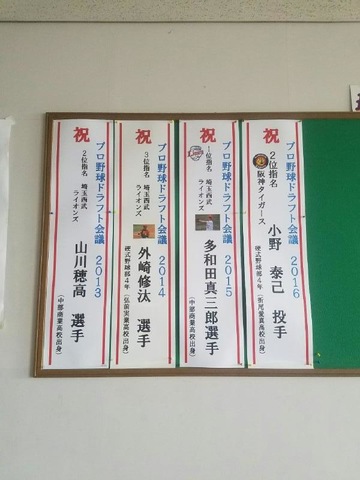 祝
プロ野球ドラフト会議 2013
2位指名 埼玉西武ライオンズ
山川穂高 選手
(中部商業高校出身)
祝
プロ野球ドラフト会議 2014
3位指名 埼玉西武ライオンズ
外崎修汰 選手
硬式野球部4年(弘前実業高校出身)
祝
プロ野球ドラフト会議 2015
1位指名 埼玉西武ライオンズ
多和田真三郎選手
硬式野球部4年(中部商業高校出身)
祝
プロ野球ドラフト会議 2016
2位指名 阪神タイガース
小野 泰己 投手
硬式野球部4年(折尾愛真高校出身)